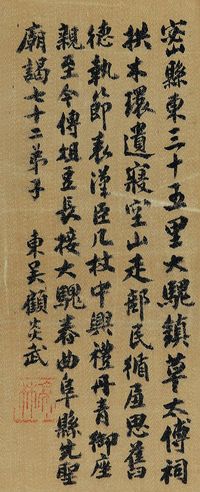 密縣東三十五里大騩鎮卓太傅祠
拱木環遺寢空山走部民循思舊
德執節表漢臣几杖中興禮丹青御座
親至今傳俎豆長接大騩春曲阜縣先聖
廟謁七十二弟子 東吳顧炎武